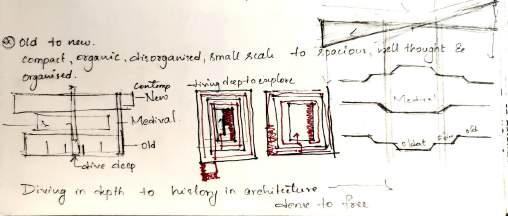 Old to new.
compact, organic, disorganised, small scale to spacious, well thought &
organised.
Contemp
New
Medival
old
dive deep
diving deep to explore
Medival
oldest
old
Diving in depth to history in architecture
dense to free